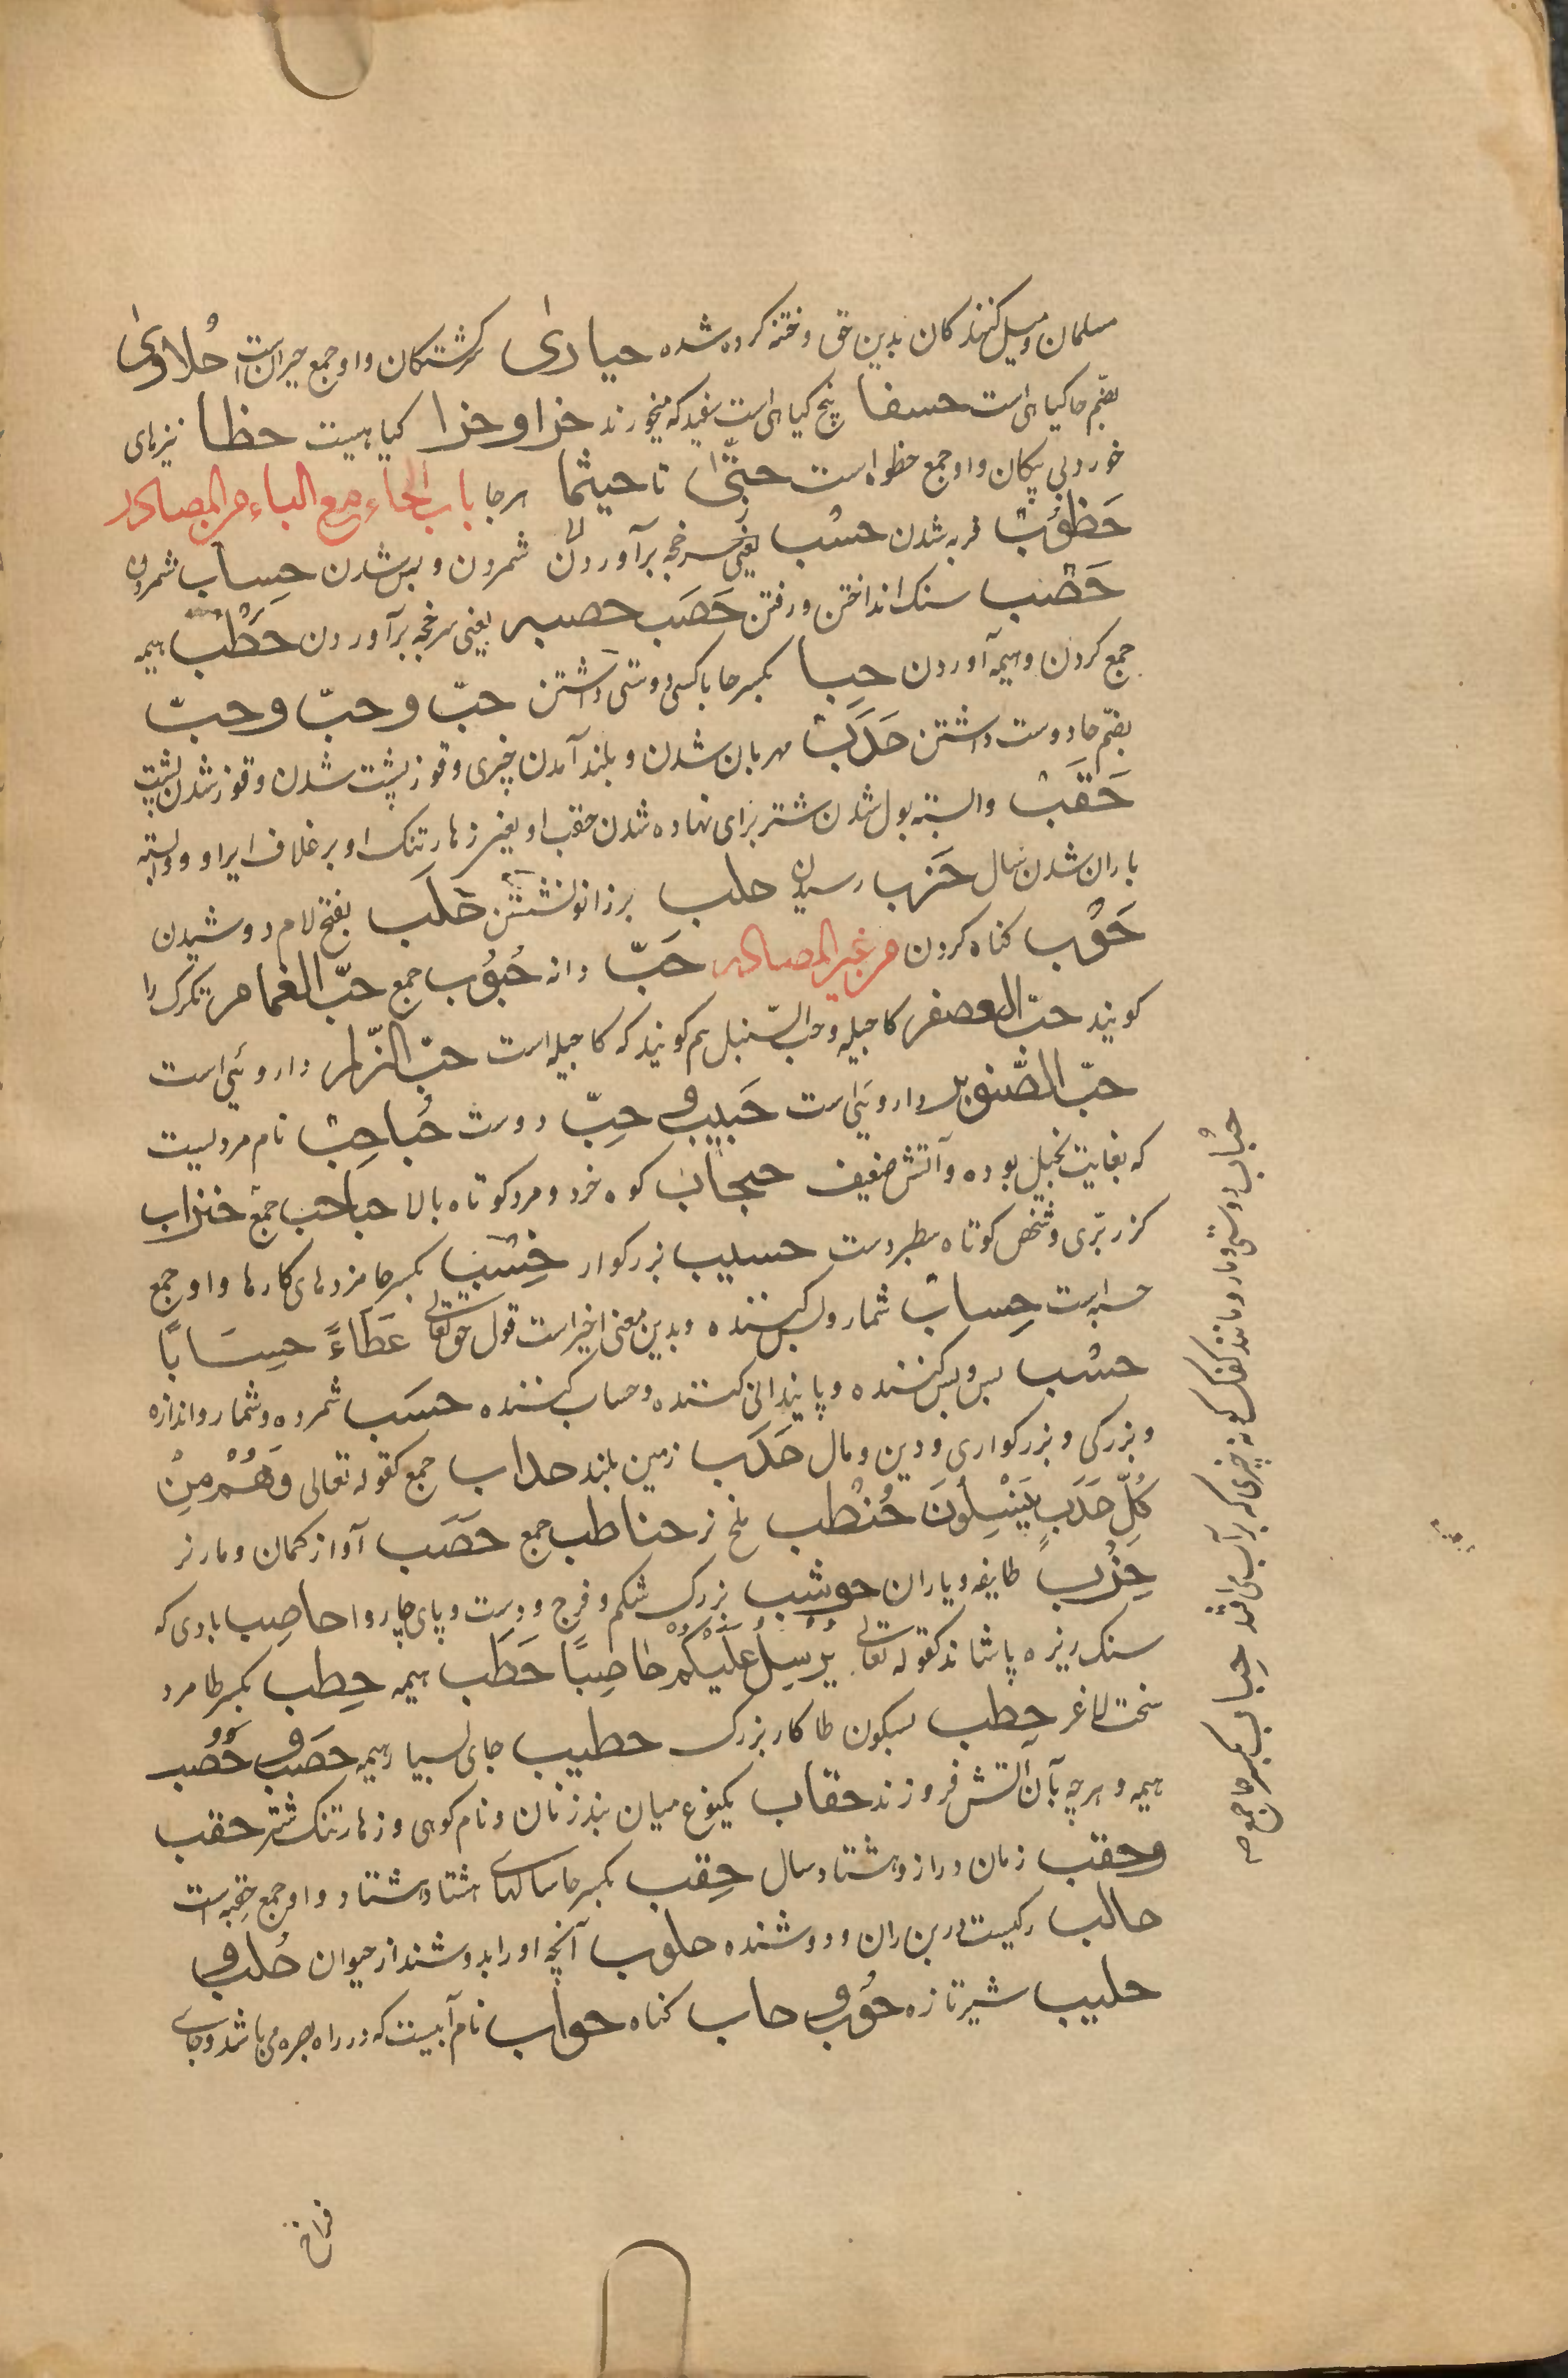 مسلمان و میل کنندکان بدین حق و ختنه کرده شده حیاری سرکشتکان و او جمع حیران است حُلاوی
بضّم حا کیاهی است حسفا پنج کیاهی است سفید که میخورند حزا و حزا کیاهیست حظا تیرهای
خورد بی پیکان و او جمع حظوه است حتّی تا حیثما هرجا باب الحاء مع الباء من المصادر
حَظُوب فربه شدن حسْب یعنی سرخجه برآوردن شمردن و بس شدن حِساب شمردن
حَصْب سنک انداختن و رفتن حَصَب حصبه یعنی سرخجه برآوردن حَطْب هیمه
جمع کردن و هیمه آوردن حِبا بکسر حا با کسی دوستی داشتن حبّ و حبّ و حبّ
بضّم حا دوست داشتن حَدَب مهربان شدن و بلند آمدن چیزی و قوز پشت شدن و قوز شدن پشت
حَقَب وابسته بول شدن شتر برای نهاده شدن حقب او یعنی زهار تنک او بر غلاف ایر او و وابسته
باران شدن سال حَزب رسیدن حلب بر زانو نشستن حَلَب بفتح لام دوشیدن
حَوْب کناه کردن من غیر المصادر حَبّ دانه حُبُوب جمع حبّ الغمام تکرک را
کویند حبّ العصفر کاجیله و حب السنبل هم کویند که کاجیله است حبّ الزّلم داروئی است
حبّ الصّنوبر داروئی است حَبیب و حِبّ دوست حُباحِب نام مردیست
که بغایت بخیل بوده و آتش ضعیف حبحاب کوه خرد و مرد کوتاه بالا حباحب جمع حنزاب
کزر برّی و شخص کوتاه سطبر دست حسیب بزرکوار حِسَب بکسر حا مزدهای کارها و او جمع
حسبه است حِساب شمار و بس کننده و بدین معنی اخیر است قول حق تعالی عَطَاءً حِسَابًا
حسْب بس و بس کننده و پایندانی کننده و حساب کننده حسَب شمرده و شمار و اندازه
و بزرکی و بزرکواری و دین و مال حَدَب زمین بلند حداب جمع کقوله تعالی وَهُمْ مِنْ
کُلِّ حَدَبٍ یَنْسِلُونَ حُنْطب ملخ نر حناطب جمع حَصَب آواز کمان و مار نر
حِزْب طایفه و یاران حوشب بزرک شکم و فرج و دست و پای چاروا حاصِب بادی که
سنک ریزه پاشاند کقوله تعالی یُرْسِلُ عَلَیْکُمْ حاصِبًا حَطَب هیمه حِطب بکسر طا مرد
سخت لاغر حِطب بسکون طا کار بزرک حطیب جای بسیار هیمه حصَب و حُصُب
هیمه و هرچه بآن آتش فروزند حقاب یکنوع میان بند زنان و نام کوهی و زهار تنک شتر حقب
وحقب زمان دراز و هشتاد سال حِقب بکسر حا سالهای هشتاد هشتاد و او جمع حقبه است
حالب رکیست در بن ران و دوشنده حلوب آنچه او را بدوشند از حیوان حُلب و
حلیب شیر تازه حُوب و حاب کناه حوأب نام آبیست که در راه بصره می باشد و جای
فراخ
حُباب دوستی و مار و مانند کفک کونه چیزی که بر آب می افتد حِباب بکسر حا جمع